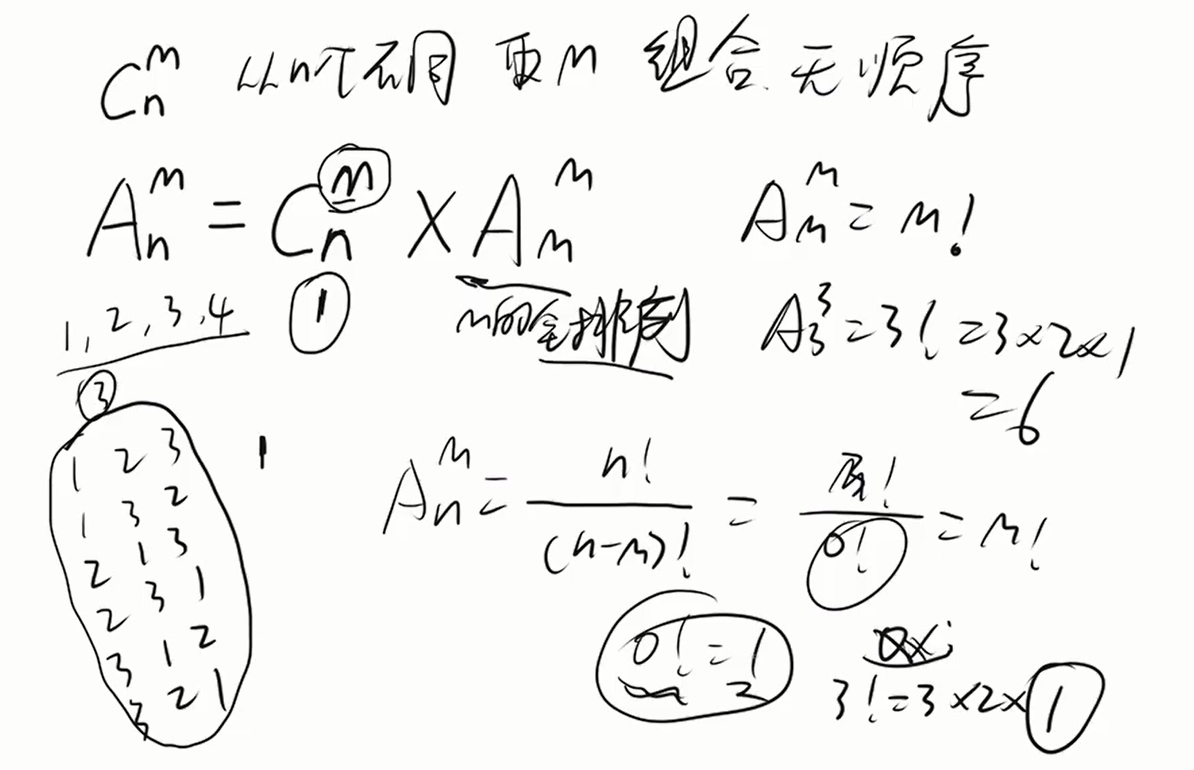 C_n^m 从n个不同 取m 组合 无顺序
A_n^m = C_n^m × A_m^m
A_m^m = m!
1, 2, 3, 4
①
m的全排列
A_3^3 = 3! = 3×2×1
= 6
③
1 2 3
1 3 2
2 1 3
2 3 1
3 1 2
3 2 1
1
A_n^m = n!/(n-m)! = m!/0! = m!
0! = 1
3! = 3×2×1